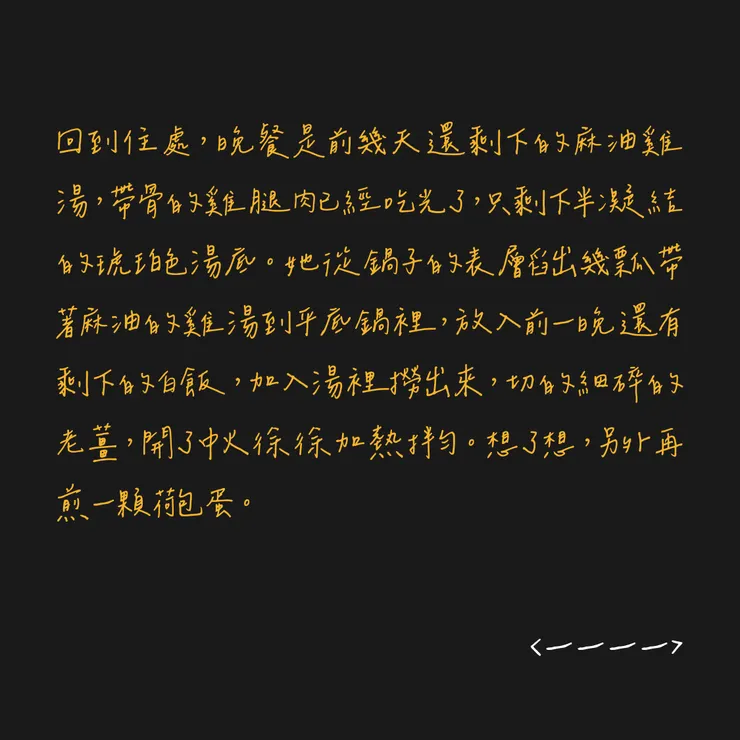 回到住處，晚餐是前幾天還剩下的麻油雞
湯，帶骨的雞腿肉已經吃光了，只剩下半凝結
的琥珀色湯底。她從鍋子的表層舀出幾瓢帶
著麻油的雞湯到平底鍋裡，放入前一晚還有
剩下的白飯，加入湯裡撈出來，切的細碎的
老薑，開了中火徐徐加熱拌勻。想了想，另外再
煎一顆荷包蛋。